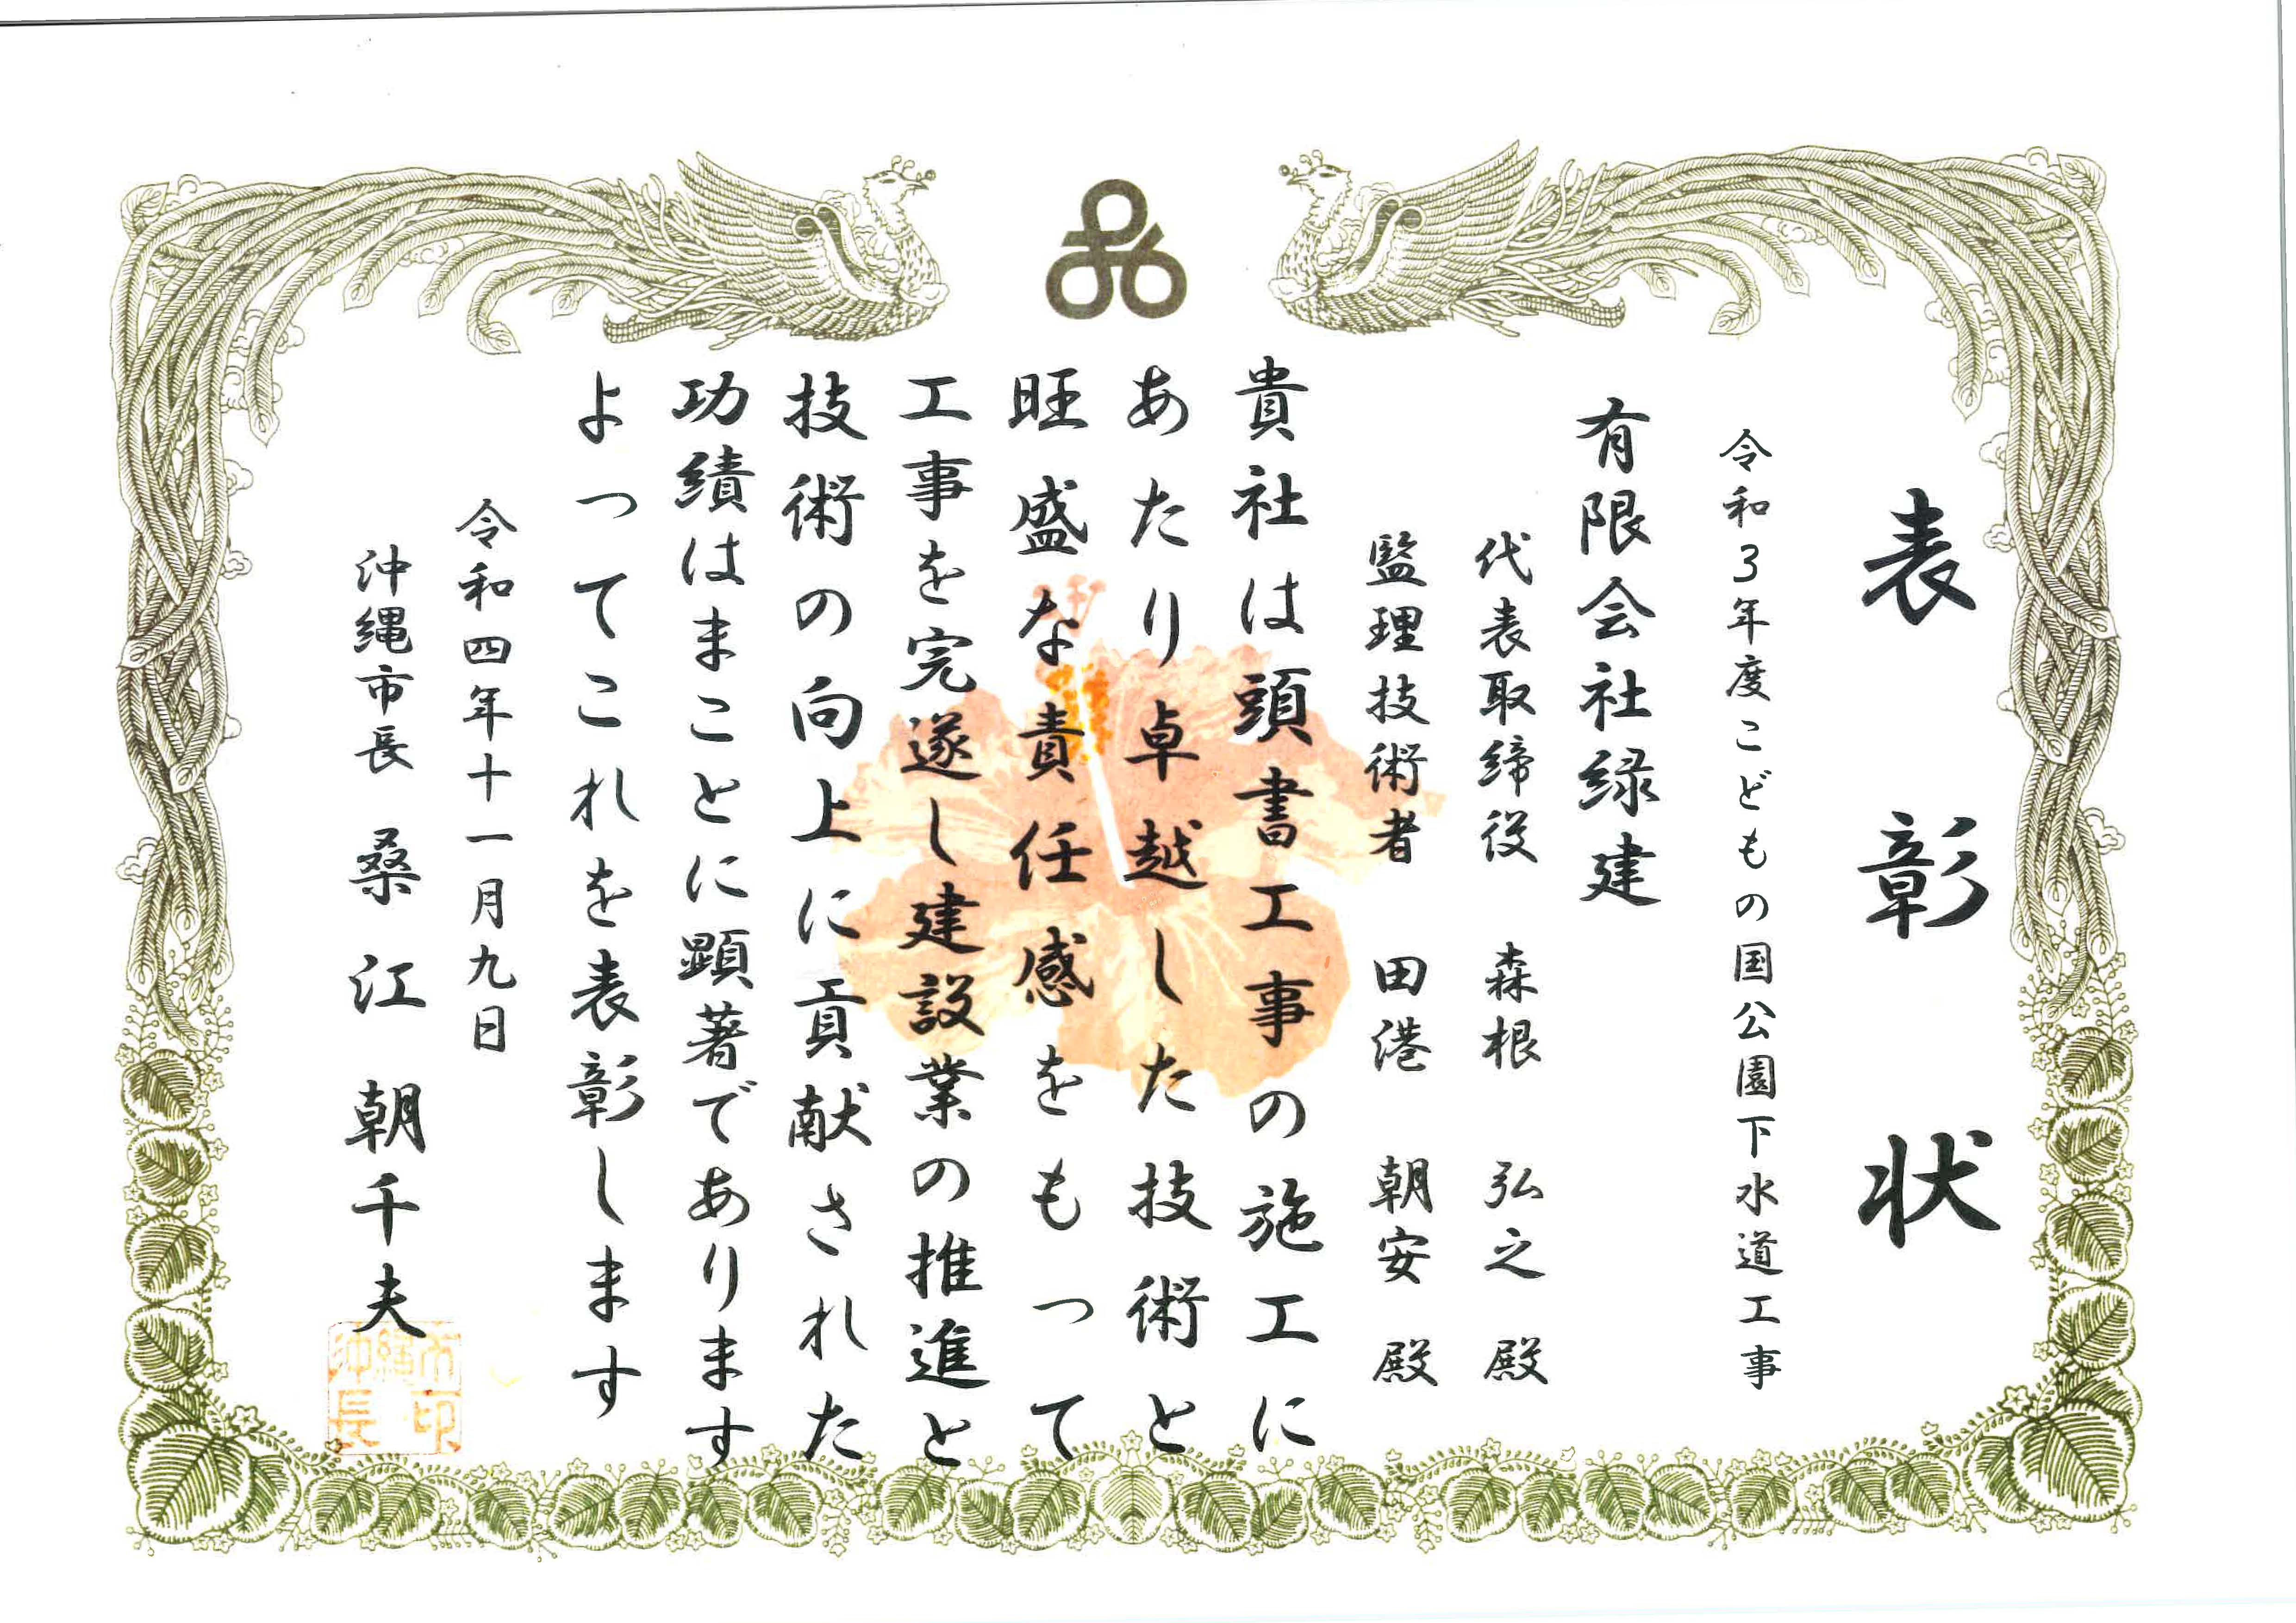 表彰状
令和3年度こどもの国公園下水道工事
有限会社緑建
代表取締役 森根 弘之 殿
監理技術者 田港 朝安 殿
貴社は頭書工事の施工に
あたり卓越した技術と
旺盛な責任感をもって
工事を完遂し建設業の推進と
技術の向上に貢献された
功績はまことに顕著であります
よってこれを表彰します
令和四年十一月九日
沖縄市長 桑江 朝千夫
沖縄市長印